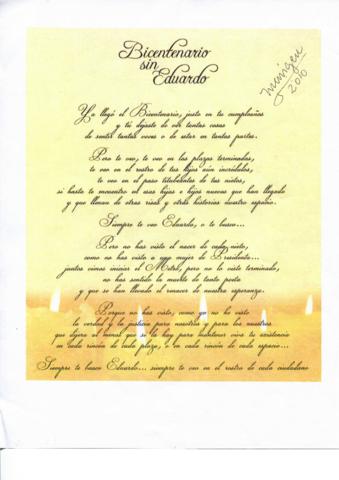 Bicentenario
sin
Eduardo
2010
Ya llegó el Bicentenario, justo en tu cumpleaños
y tú dejaste de ver tantas cosas
de sentir tantas voces o de estar en tantas partes.
Pero te veo, te veo en las plazas terminadas,
te veo en el rostro de tus hijos aún incrédulos,
te veo en el paso titubeante de tus nietos,
si hasta te encuentro en esos hijos e hijas nuevos que han llegado
y que llenan de otras risas y otras historias nuestro espacio.
Siempre te veo Eduardo, o te busco...
Pero no has visto el nacer de cada nieto,
como no has visto a una mujer de Presidenta...
juntos vimos iniciar el Metro, pero no lo viste terminado,
no has sentido la muerte de tanto poeta
y que se han llevado el renacer de nuestra esperanza.
Porque no has visto, como yo no he visto
la verdad y la justicia para nosotros y para los nuestros
que dejara al menos que se
en cada rincón de cada plaza, o en cada rincón de cada espacio...
Siempre te busco Eduardo... siempre te veo en el rostro de cada ciudadano